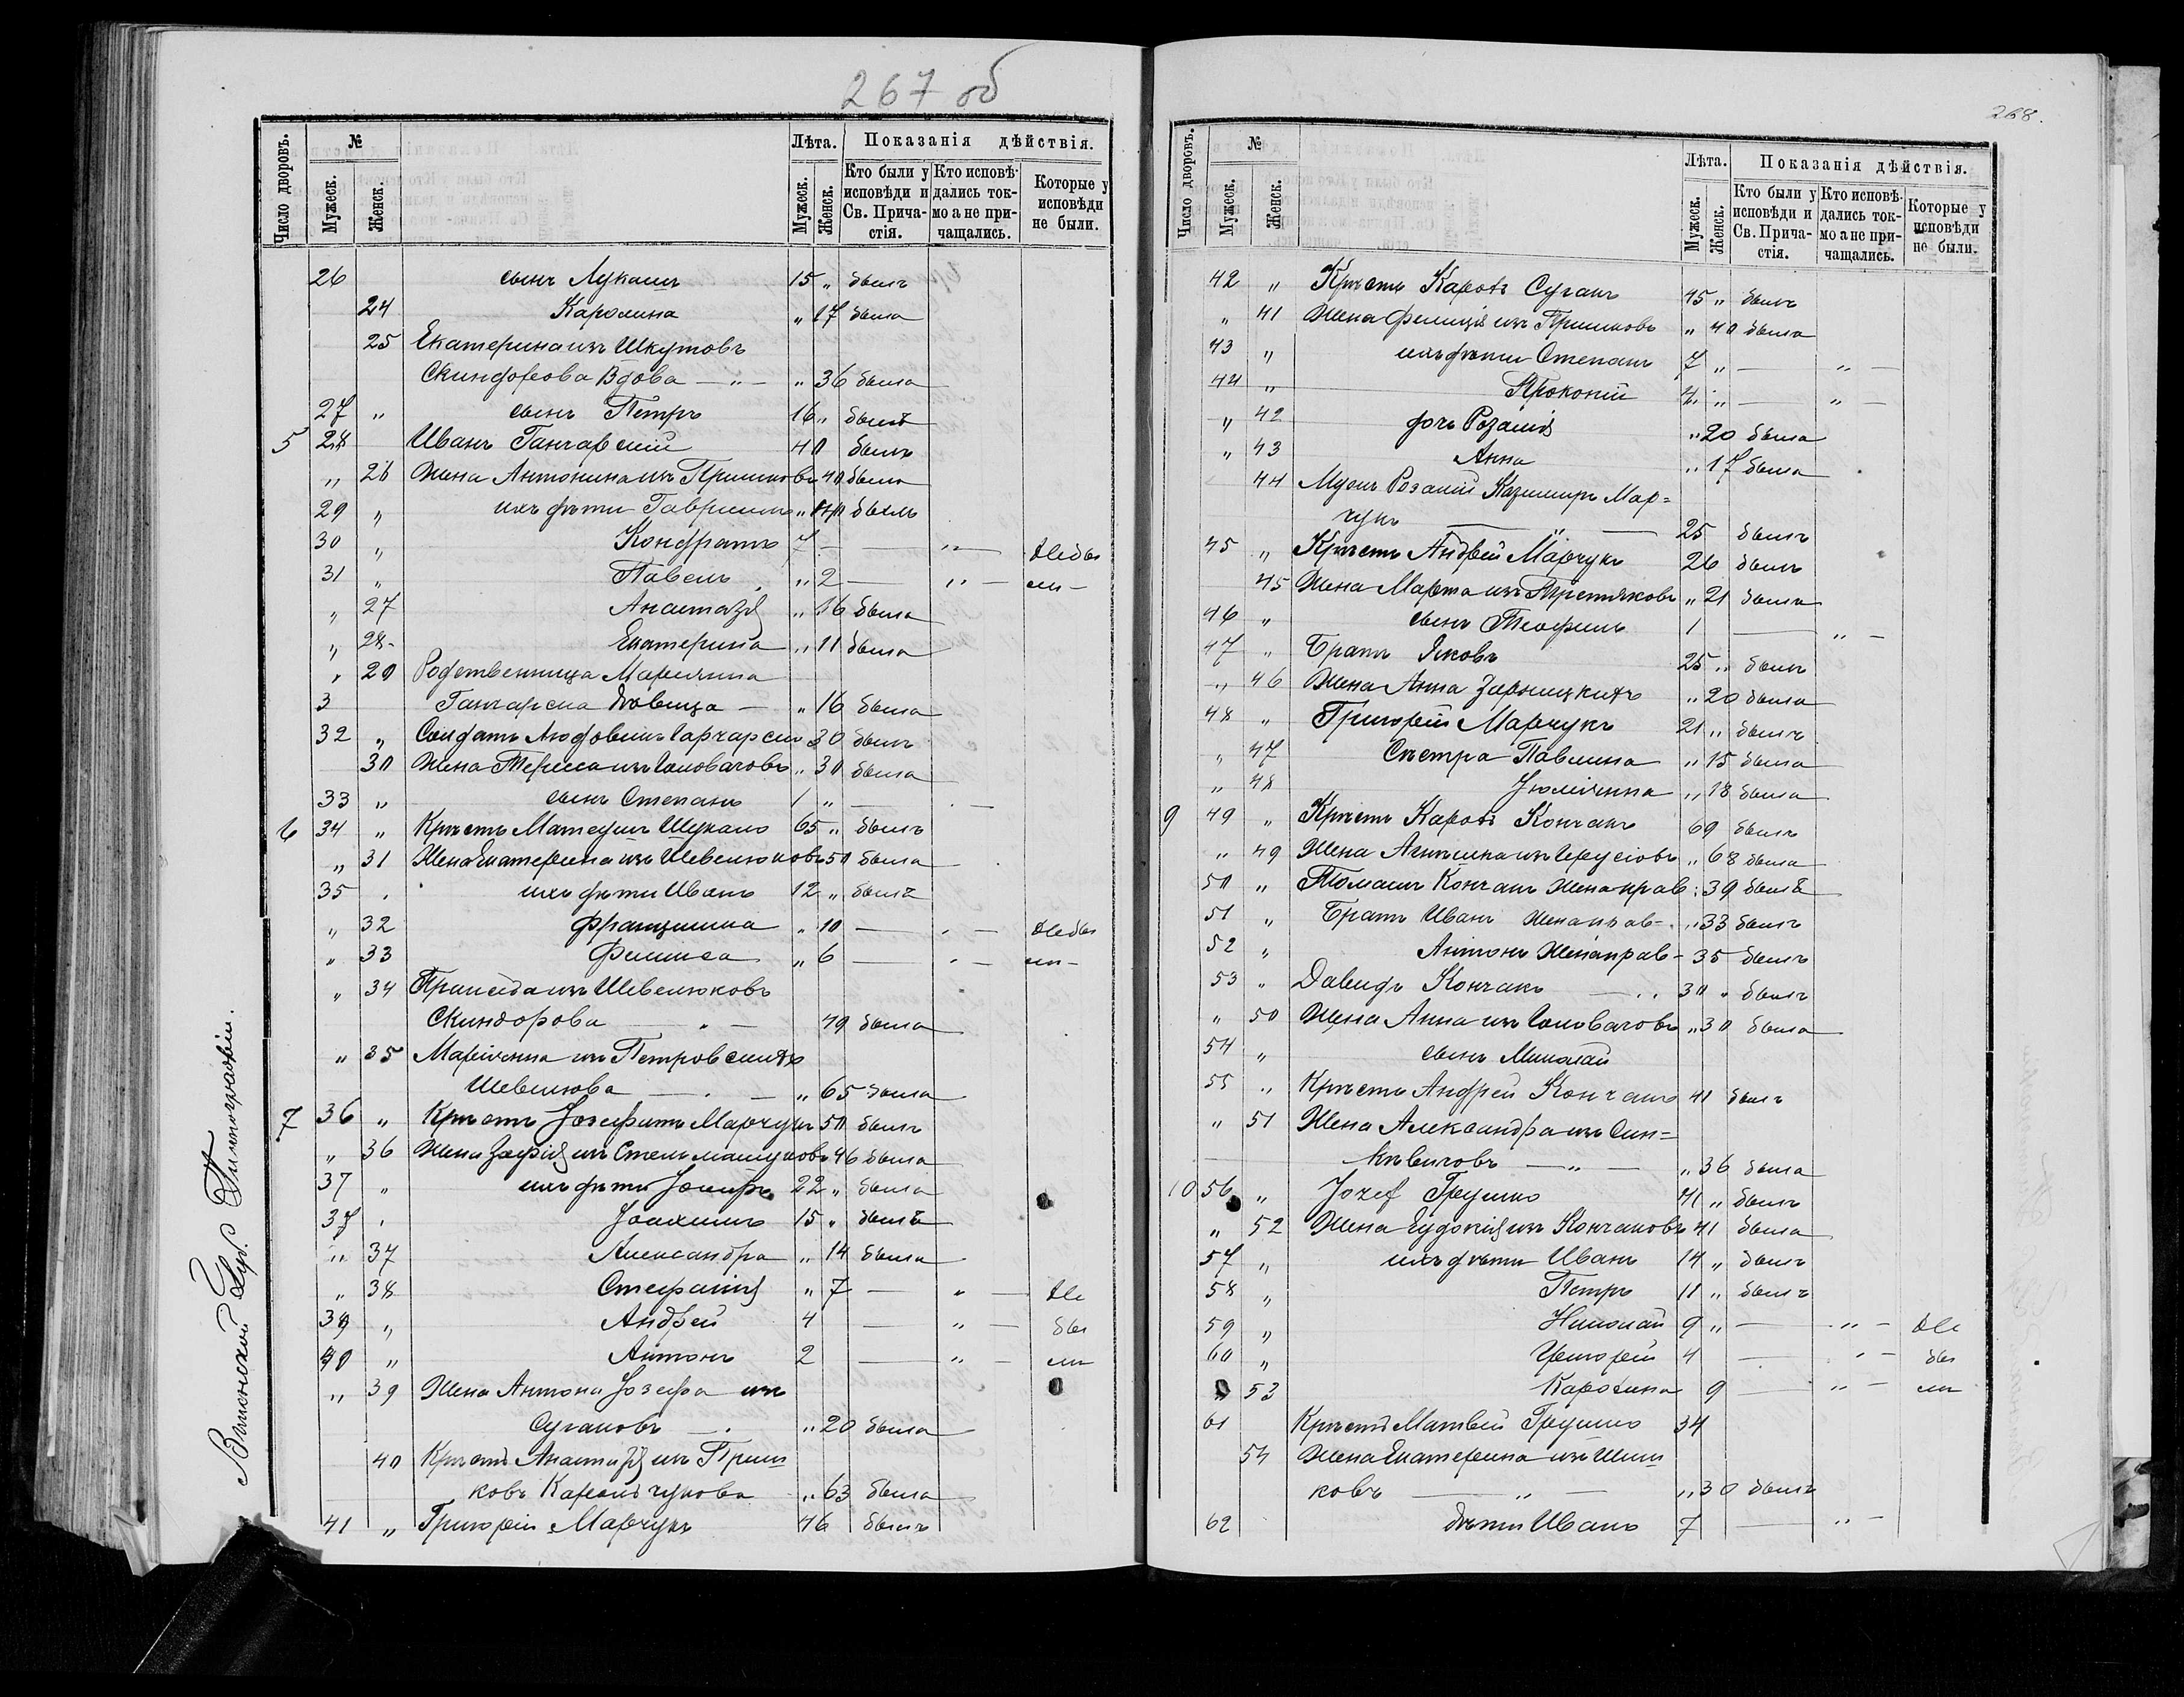 267 об
Число дворовъ. № Лѣта. Показанія дѣйствія.
Мужеск. Женск. Мужеск. Женск. Кто были у исповѣди и Св. Прича-стія. Кто исповѣ-дались ток-мо а не при-чащались. Которые у исповѣди не были.
26 сынъ Лукашъ 15 „ былъ
24 Каролина „ 17 была
25 Екатерина изъ Шкутовъ
Вдова — „ — „ 36 была
27 „ сынъ Петръ 16 „ былъ
5 28 Иванъ Ганчарскій 40 былъ
„ 26 Жена Антонина изъ 40 была
29 „ ихъ дѣти былъ
30 „ Кондратъ 7 — „ — Не бы
31 „ Павелъ „ 2 — „ — ли —
„ 27 Анастазія „ 16 была
„ 28 Екатерина „ 11 была
„ 29 Родственница Маріянна
3 дѣвица — „ 16 была
32 „ Солдатъ Людовикъ 30 былъ
30 Жена Тереса изъ Головачовъ „ 30 была
33 „ сынъ Степанъ 1 „ —
6 34 „ Крѣстъ 65 „ былъ
„ 31 Жена Екатерина изъ Шевелюковъ 50 была
35 ихъ дѣти Иванъ 12 „ былъ
„ 32 Францишка „ 10 — Не бы
„ 33 „ 6 — ли —
„ 34 изъ Шевелюковъ
49 была
„ 35 Маріянна изъ Петровскихъ
— „ 65 была
7 36 „ Крѣстъ Іозефатъ Марчукъ 50 былъ
„ 36 Жена Зофія изъ 46 была
37 „ ихъ дѣти Іосифъ 22 „ была
37 Іоахимъ 15 „ былъ
„ 37 Александра „ 14 была
„ 38 Стефанія „ 7 — „ — Не
39 „ Андрей 4 — „ — бы
40 „ Антонъ 2 — „ — ли
„ 39 Жена Антона Іозефа изъ
Сугаковъ — „ 20 была
40 Крѣстъ Анастазія изъ Приш
ковъ „ 63 была
41 „ Григорій Марчукъ 46 былъ
Виленской Губ. Типографіи.
268.
Число дворовъ. № Лѣта. Показанія дѣйствія.
Мужеск. Женск. Мужеск. Женск. Кто были у исповѣди и Св. Прича-стія. Кто исповѣ-дались ток-мо а не при-чащались. Которые у исповѣди не были.
42 „ Крѣстъ Кароль Сугакъ 45 „ былъ
„ 41 Жена Фелиція изъ Пришковъ „ 40 была
43 „ ихъ дѣти Степанъ 7 „ — „ —
44 „ Прокопій „ — „ —
„ 42 дочь Розалія „ 20 была
„ 43 Анна „ 17 была
44 Мужъ Розаліи Казимиръ Мар=
чукъ — „ — 25 былъ
45 „ Крѣстъ Андрей Марчукъ 26 былъ
45 Жена Марта изъ Третьяковъ „ 21 была
46 „ сынъ Теофилъ 1 — „ —
47 „ Братъ Яковъ 25 „ былъ
„ 46 Жена Анна Зарницкихъ „ 20 была
48 „ Григорій Марчукъ 21 „ былъ
„ 47 Сѣстра Павлина „ 15 была
„ 48 Юліянна „ 18 была
9 49 „ Крѣстъ Кароль Кончакъ 69 былъ
„ 49 Жена „ 68 была
50 „ Томашъ Кончакъ Жена прав 39 былъ
51 „ Братъ Иванъ Жена прав — „ 33 былъ
52 „ Антонъ Жена прав — 35 былъ
53 „ Давидъ Кончакъ — 30 „ былъ
„ 50 Жена Анна изъ Головачовъ „ 30 была
54 „ сынъ Николай
55 „ Крѣстъ Андрей Кончакъ 41 былъ
„ 51 Жена Александра изъ Син=
кѣвичовъ — „ — „ 36 была
10 56 „ Jozef Грушко 41 „ былъ
„ 52 Жена Еудокія изъ Кончаковъ 41 была
57 „ ихъ дѣти Иванъ 14 „ былъ
58 „ Петръ 11 „ былъ
59 „ Николай 9 „ — „ — Не
60 „ Григорій 4 — „ — бы
„ 53 Каролина 9 — „ — ли
61 Крѣстъ Матвей Грушко 34
54 Жена Екатерина изъ Шиш
ковъ — „ — „ 30 былъ
62 дѣти Иванъ 7 — „ —